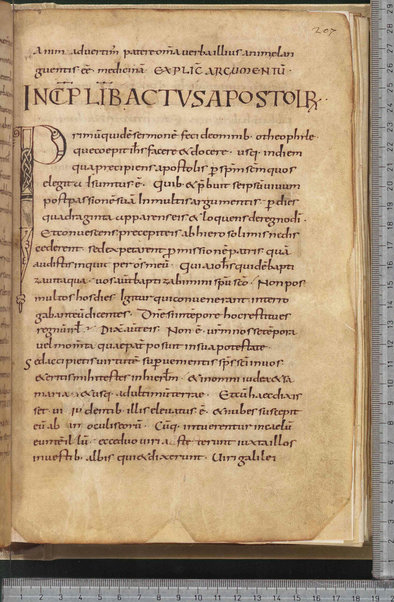 207
animadvertim pariter omia verba illius animę lan
guentis eē medicinā EXPLIC ARGUMENTŪ
INCP LIB ACTVS APOSTOLR
Primū quidē sermonē feci de omnib. o theophile
que coepit ihs facere & docere. usq; in diem
qua precipiens apostolis p spm scm quos
elegit adsumtus ē. Quib. & p̄buit se ipsū uiuum
post passionē suā In multis argumentis. p dies
quadraginta apparens eis & loquens de regno dī.
Et conuescens precepit eis ab hierosolimis ne dis
cederent. sed expectarent promissionē patris quā
audistis inquit per os meū. Quia iohs quidē bapti
zauit aqua. uos autē baptizabimini spu sco. Non pos
multos hos dies. Igitur qui conuenerant interro
gabant eū dicentes. Dne si in tempore hoc restitues
regnū isrl. Dix autē eis. Non ē urm nosse tēpora
vel momta quae pat posuit in sua potestate.
Sed accipietis uirtutē superuenientis sps sci in uos
& eritis mihi testes in hierlm. & in omni iudea & sa
maria. & usq; ad ultimū terrae. Et cū haec dixis
set uidentib. illis eleuatus ē. & nubes suscepit
eū ab oculis eorū. Cūq; intuerentur in caelū
eunte illū. ecce duo uiri asteterunt iuxta illos
in uestib. albis qui & dixerunt. Uiri galilei